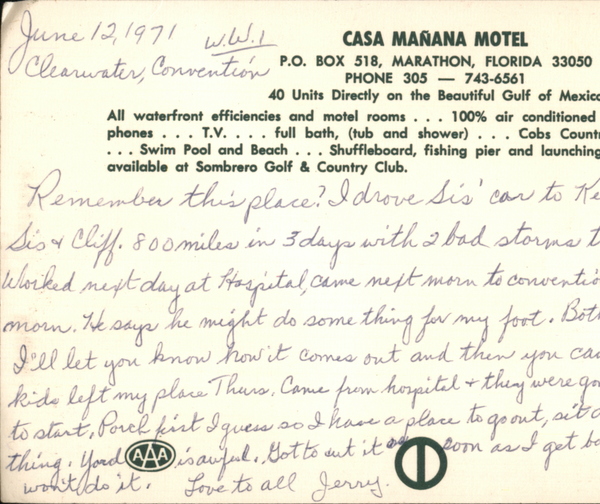 June 12, 1971 W.W.1
Clearwater, Convention
CASA MAÑANA MOTEL
P.O. BOX 518, MARATHON, FLORIDA 33050
PHONE 305 — 743-6561
40 Units Directly on the Beautiful Gulf of Mexico
All waterfront efficiencies and motel rooms . . . 100% air conditioned
phones . . . T.V. . . . full bath, (tub and shower) . . . Cobs Count
. . . Swim Pool and Beach . . . Shuffleboard, fishing pier and launching
available at Sombrero Golf & Country Club.
Remember this place? I drove Sis' car to Ke
Sis & Cliff. 800 miles in 3 days with 2 bad storms t
Worked next day at Hospital, came next morn to conventio
morn. He says he might do some thing for my foot. Both
I'll let you know how it comes out and then you can
kids left my place Thurs. Came from hospital & they were go
to start. Porch first I guess so I have a place to go out, sit a
thing. Yard AAA is awful. Got to cut it as soon as I get ba
won't do it. Love to all Jerry.